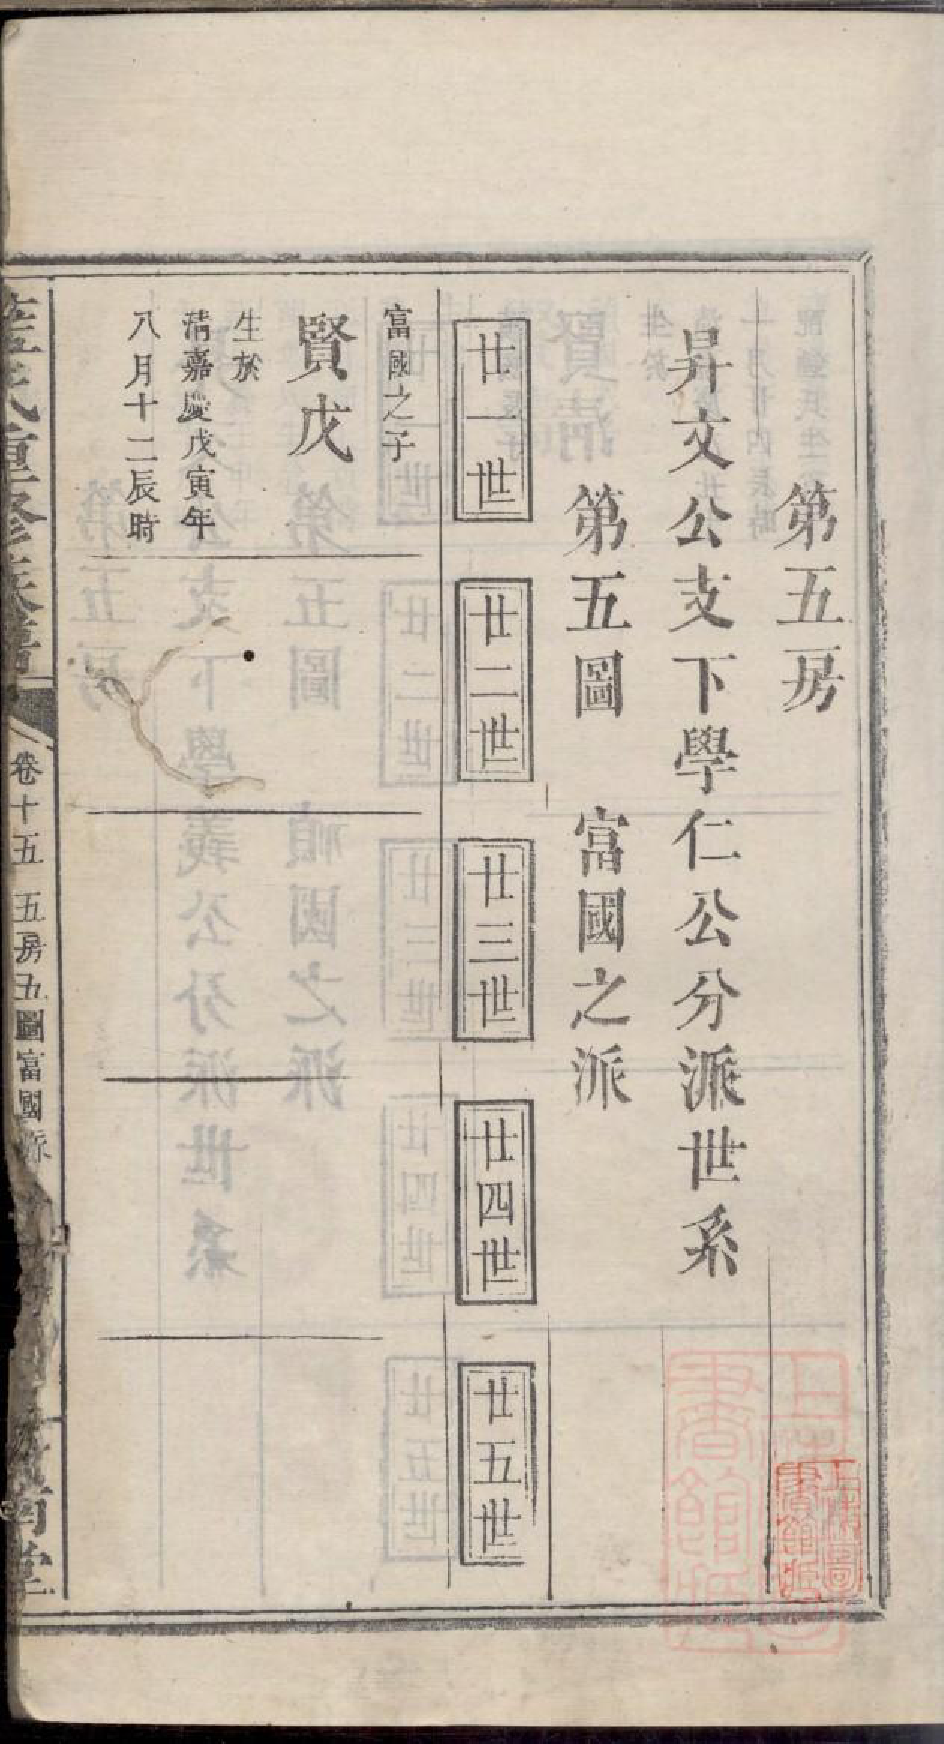 第五房
昇文公支下學仁公分派世系
第五圖 富國之派
廿一世
廿二世
廿三世
廿四世
廿五世
富國之子
賢戊
生於
清嘉慶戊寅年
八月十二辰時
氏重修族譜
卷十五 五房五圖富國派
堂
上海圖書館藏